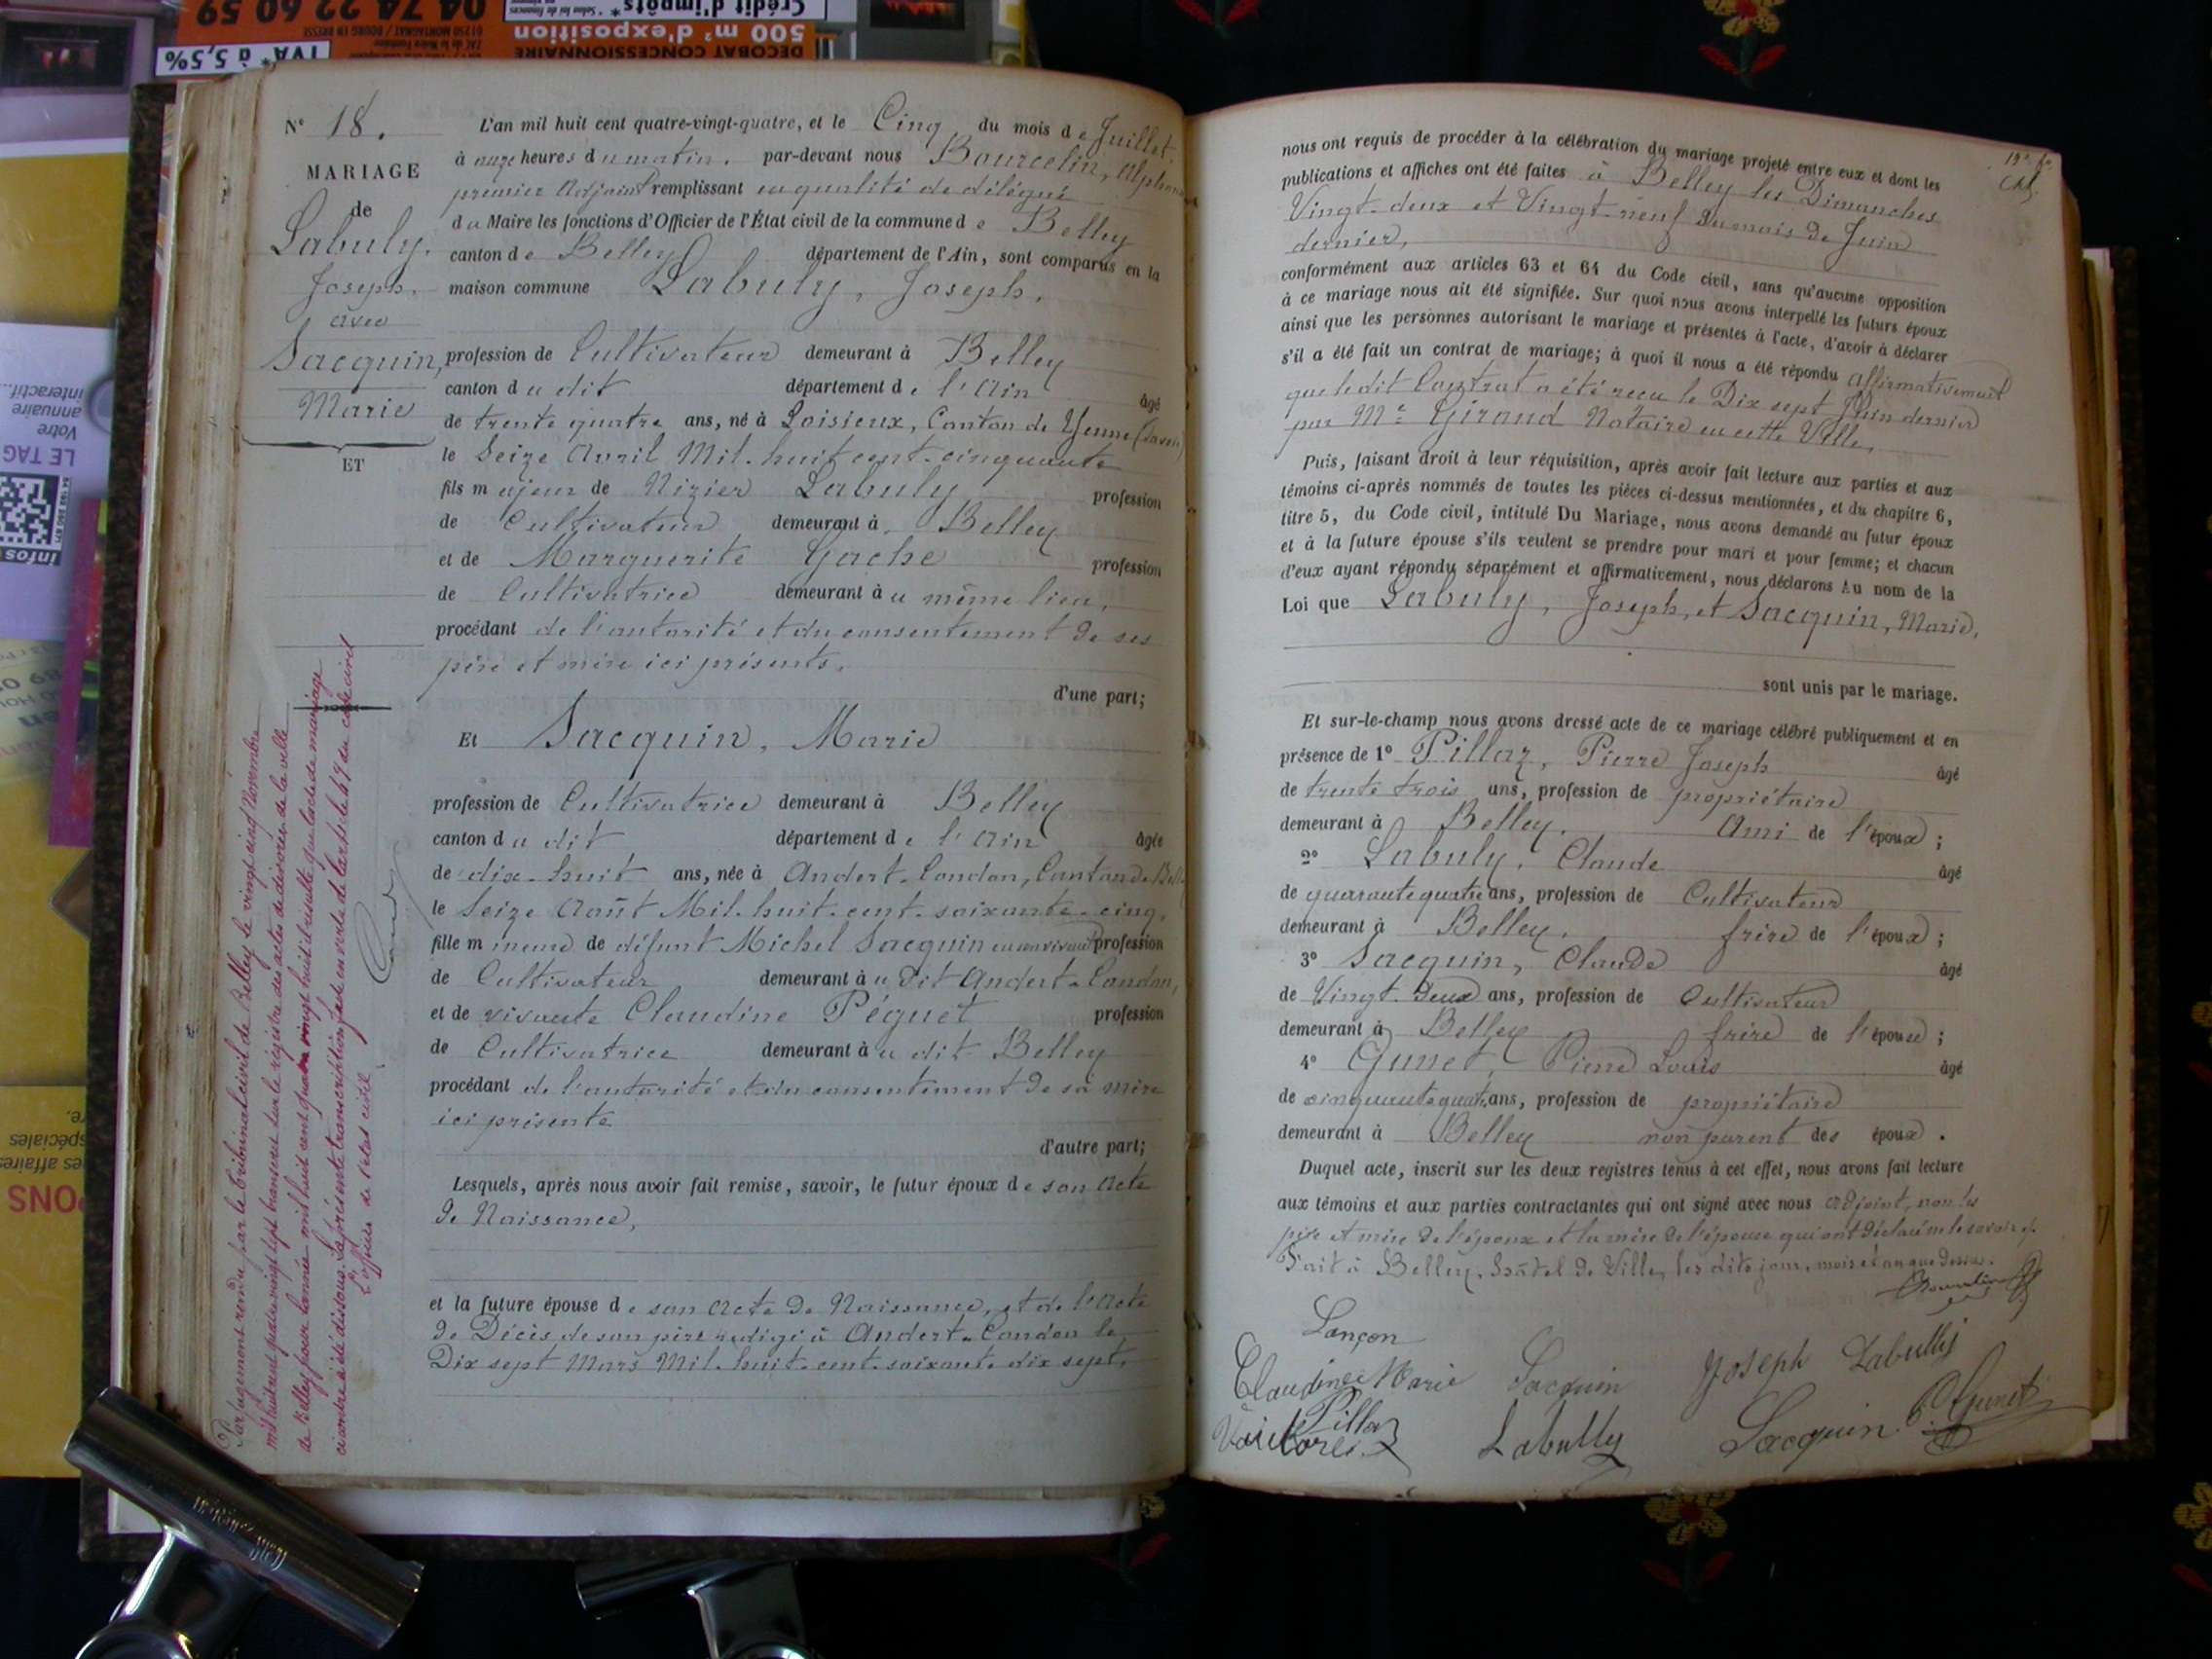 N° 18.
MARIAGE
de
Labuly.
Joseph.
avec
Sacquin,
Marie
ET
L'an mil huit cent quatre-vingt-quatre, et le Cinq du mois de Juillet.
à onze heures du matin. par-devant nous Bourcelin, Alphonse
premier Adjoint remplissant en qualité de délégué
du Maire les fonctions d'Officier de l'État civil de la commune de Belley
canton de Belley département de l'Ain, sont comparus en la
maison commune Labuly, Joseph,
profession de Cultivateur demeurant à Belley
canton du dit département de l'Ain âgé
de trente quatre ans, né à Loisieux, Canton de Yenne (Savoie)
le Seize Avril Mil-huit cent-cinquante
fils majeur de Nizier Labuly profession
de Cultivateur demeurant à Belley
et de Marguerite Gache profession
de Cultivatrice demeurant au même lieu,
procédant de l'autorité et du consentement de ses
père et mère ici présents,
d'une part;
Et Sacquin, Marie
profession de Cultivatrice demeurant à Belley
canton du dit département de l'Ain âgée
de dix-huit ans, née à Andert-Condon, Canton de Belley
le Seize Août Mil-huit-cent-soixante-cinq,
fille mineure de défunt Michel Sacquin en son vivant profession
de Cultivateur demeurant au dit Andert-Condon,
et de vivante Claudine Péguet profession
de Cultivatrice demeurant au dit Belley
procédant de l'autorité et du consentement de sa mère
ici présente
d'autre part;
Lesquels, après nous avoir fait remise, savoir, le futur époux de son Acte
de Naissance,
et la future épouse de son Acte de Naissance, et de l'Acte
de Décès de son père rédigé à Andert-Condon le
Dix sept Mars Mil-huit-cent-soixante-dix sept,
Par jugement rendu par le tribunal civil de Belley le vingt cinq Novembre
mil huit cent quatre vingt sept transcrit sur le registre des actes de divorce de la ville
de Belley pour l'année mil huit cent quatre vingt huit il résulte que l'acte de mariage
ci contre a été dissous. La présente transcription faite en vertu de l'article 49 du code civil
L'officier de l'état civil
nous ont requis de procéder à la célébration du mariage projeté entre eux et dont les
publications et affiches ont été faites à Belley les Dimanches
Vingt-deux et Vingt-neuf du mois de Juin
dernier,
conformément aux articles 63 et 64 du Code civil, sans qu'aucune opposition
à ce mariage nous ait été signifiée. Sur quoi nous avons interpellé les futurs époux
ainsi que les personnes autorisant le mariage et présentes à l'acte, d'avoir à déclarer
s'il a été fait un contrat de mariage; à quoi il nous a été répondu affirmativement
que ledit Contrat a été reçu le Dix sept Juin dernier
par Me Giraud Notaire en cette Ville,
Puis, faisant droit à leur réquisition, après avoir fait lecture aux parties et aux
témoins ci-après nommés de toutes les pièces ci-dessus mentionnées, et du chapitre 6,
titre 5, du Code civil, intitulé Du Mariage, nous avons demandé au futur époux
et à la future épouse s'ils veulent se prendre pour mari et pour femme; et chacun
d'eux ayant répondu séparément et affirmativement, nous déclarons au nom de la
Loi que Labuly, Joseph, et Sacquin, Marie,
sont unis par le mariage.
Et sur-le-champ nous avons dressé acte de ce mariage célébré publiquement et en
présence de 1° Pillaz, Pierre Joseph âgé
de trente trois ans, profession de propriétaire
demeurant à Belley. Ami de l'époux ;
2° Labuly, Claude âgé
de quarante quatre ans, profession de Cultivateur
demeurant à Belley. frère de l'époux ;
3° Sacquin, Claude âgé
de Vingt-deux ans, profession de Cultivateur
demeurant à Belley frère de l'épouse ;
4° Gunet, Pierre Louis âgé
de cinquante quatre ans, profession de propriétaire
demeurant à Belley non parent des époux .
Duquel acte, inscrit sur les deux registres tenus à cet effet, nous avons fait lecture
aux témoins et aux parties contractantes qui ont signé avec nous adjoint, non les
père et mère de l'époux et la mère de l'épouse qui ont déclaré ne le savoir
Fait à Belley, hôtel de Ville, les dits jour, mois et an que dessus.
Lançon
Claudine Marie Sacquin Joseph Labully
Pillaz Labully Sacquin Gunet
DECOBAT CONCESSIONNAIRE
500 m² d'exposition
Crédit d'impôts*
TVA* à 5,5%
04 74 22 60 59
LE TAG
Votre
annuaire
interactif...
infos